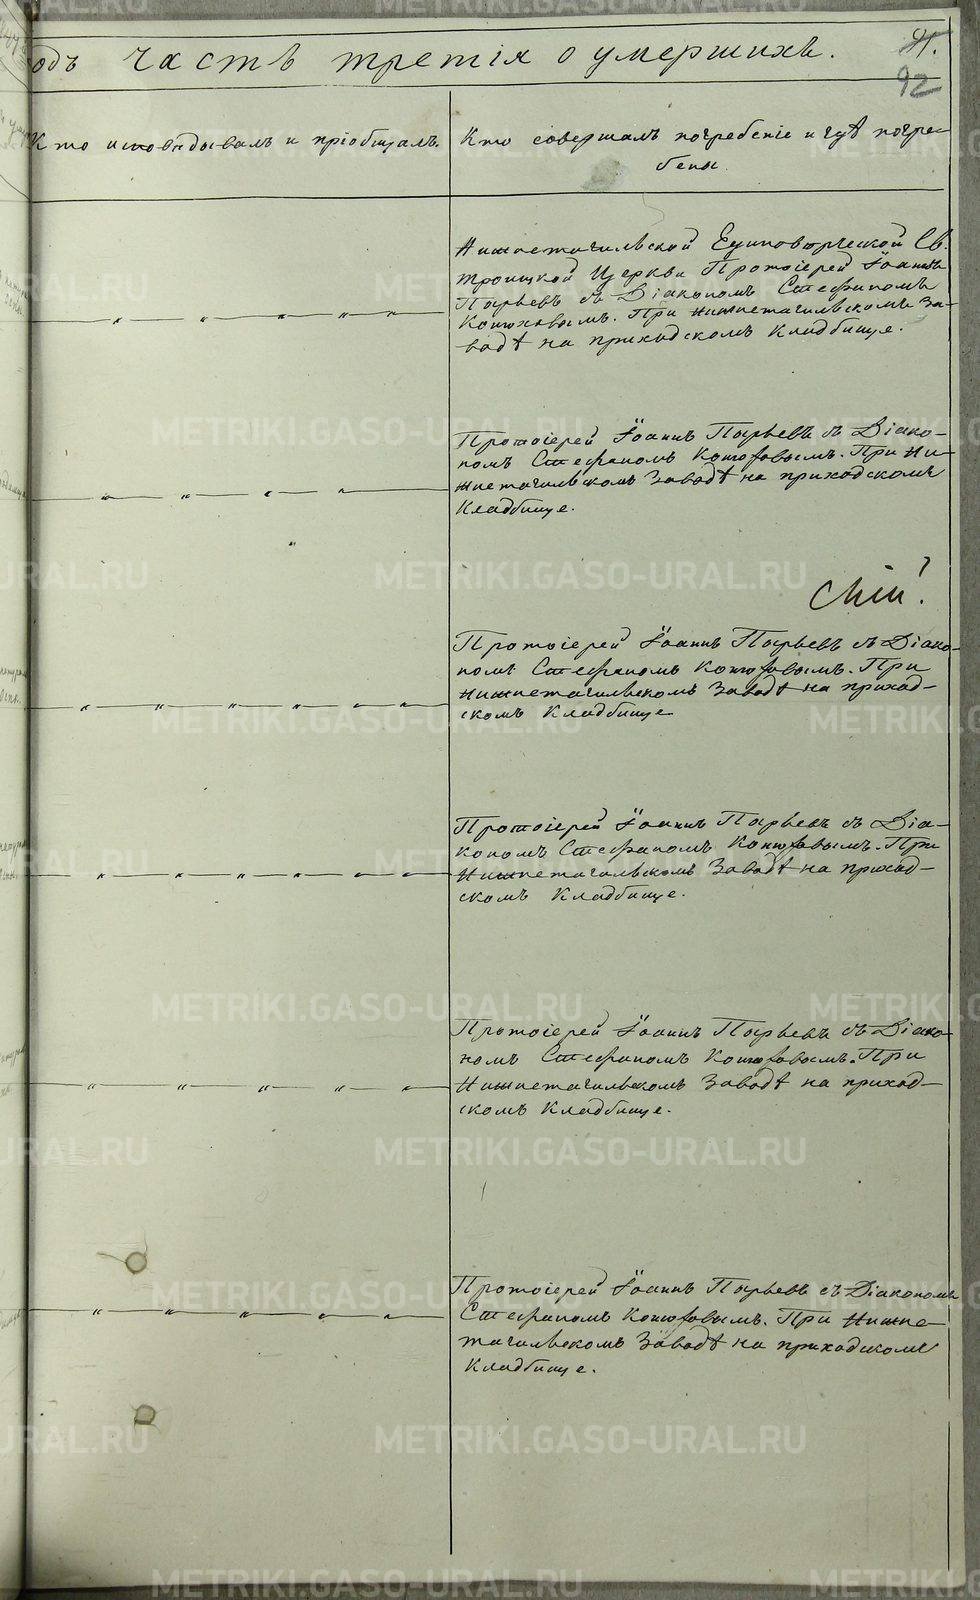 одъ часть третія о умершихъ.
91.
92
Кто исповѣдывалъ и пріобщалъ.
Кто совершалъ погребеніе и гдѣ погре-
бены.
Нижнетагильской Единовѣрческой Св.
Троицкой Церкви Протоіерей Іоаннъ
Пырьевъ съ Діакономъ Стефаномъ
Конюховымъ. При Нижнетагильскомъ За-
водѣ на приходскомъ Кладбище.
" " " " "
Протоіерей Іоаннъ Пырьевъ съ Діако-
номъ Стефаномъ Конюховымъ. При Ни-
жнетагильскомъ Заводѣ на приходскомъ
Кладбище.
" " " "
Протоіерей Іоаннъ Пырьевъ съ Діако-
номъ Стефаномъ Конюховымъ. При
Нижнетагильскомъ Заводѣ на приход-
скомъ Кладбище
" " " " " "
Протоіерей Іоаннъ Пырьевъ съ Діа-
кономъ Стефаномъ Конюховымъ. При
Нижнетагильскомъ Заводѣ на приход-
скомъ Кладбище.
" " " " " "
Протоіерей Іоаннъ Пырьевъ съ Діако-
номъ Стефаномъ Конюховымъ. При
Нижнетагильскомъ Заводѣ на приход-
скомъ Кладбище.
" " " " "
Протоіерей Іоаннъ Пырьевъ съ Діакономъ
Стефаномъ Конюховымъ. При Нижне-
тагильскомъ Заводѣ на приходскомъ
Кладбище.
" " " " "
METRIKI.GASO-URAL.RU